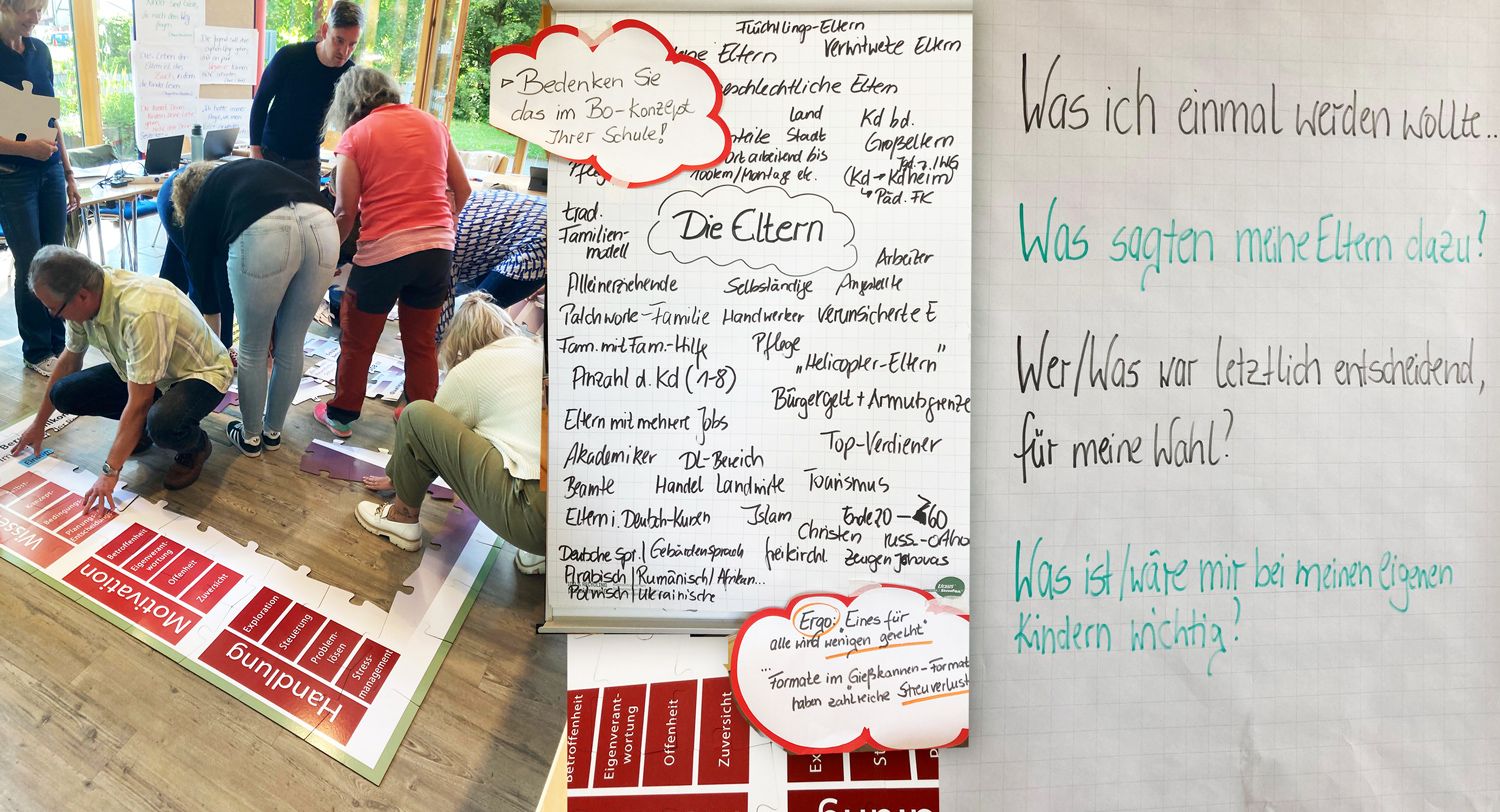 Das Leben der
Eltern ist das
Buch, in dem
die Kinder lesen.
Wissen
Motivation
Betroffenheit
Eigenverant-
wortung
Offenheit
Zuversicht
Handlung
Exploration
Steuerung
Problem-
lösen
Stress-
management
▻ Bedenken Sie
das im Bo-Konzept
Ihrer Schule!
Flüchtlings-Eltern
Eltern
Verwitwete Eltern
geschlechtliche Eltern
Land
Stadt
Kd bd.
Großeltern
Jgd. i. WG
Ort arbeitend bis
100km/Montage etc.
(Kd → Kdheim)
↳ Päd. FK
Die Eltern
trad.
Familien-
modell
Arbeiter
Alleinerziehende Selbständige Angestellte
Patchwork-Familie Handwerker verunsicherte E
Fam. mit Fam.-Hilfe Pflege
„Helicopter-Eltern"
Anzahl d. Kd (1-8)
Bürgergelt + Armutsgrenze
Eltern mit mehrere Jobs
Top-Verdiener
Akademiker DL-Bereich
Beamte Handel Landwirte Tourismus
Eltern i. Deutsch-Kursen Islam Ende 20 – 60
Christen russ.-ortho
Deutsche Spr. / Gebärdensprach freikirchl. Zeugen Jehovas
Arabisch / Rumänisch / Afrikan...
Polnisch / Ukrainische
Ergo: „Eines für
alle wird wenigen gerecht"
...Formate im Gießkannen-Format
haben zahlreiche Streuverlust
Betroffenheit
Eigenverant-
wortung
Offenheit
Zuversicht
Was ich einmal werden wollte..
Was sagten meine Eltern dazu?
Wer/Was war letztlich entscheidend,
für meine Wahl?
Was ist/wäre mir bei meinen eigenen
Kindern wichtig?